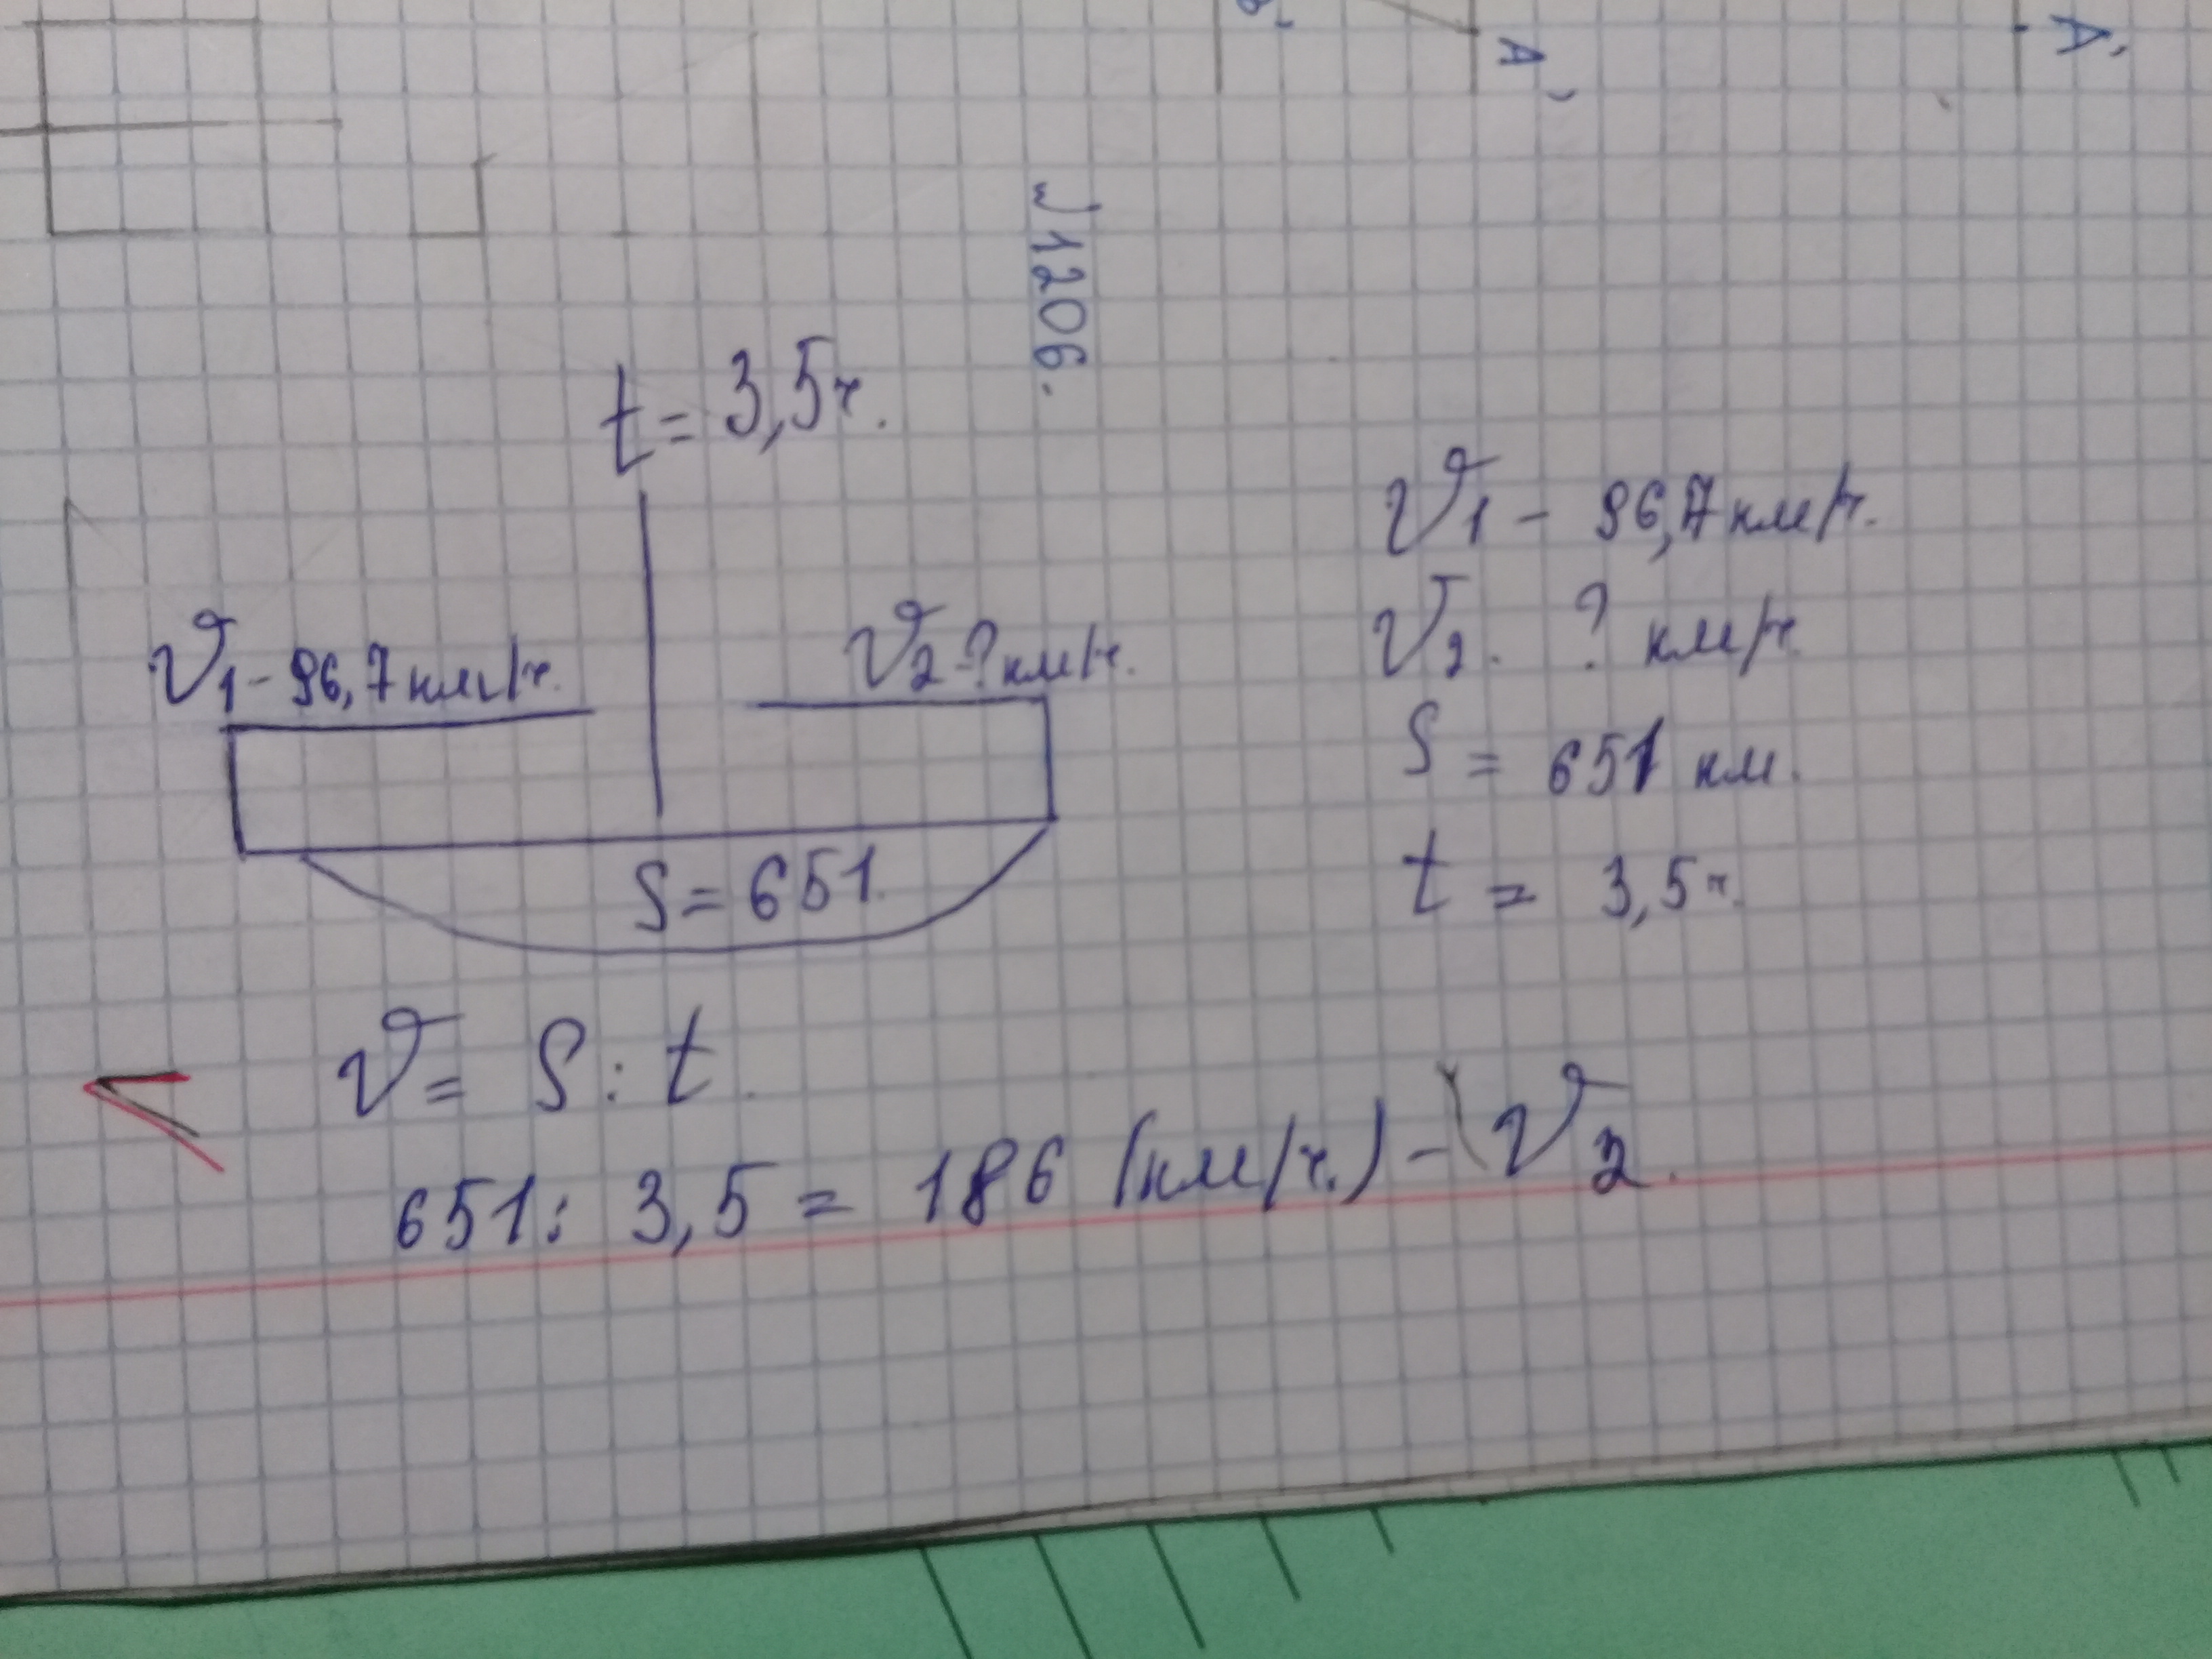 В'
А'
А'
№1206.
t = 3,5ч.
V1 - 96,7 км/ч.
V2 - ? км/ч.
S = 651.
V1 - 96,7 км/ч.
V2. ? км/ч.
S = 651 км.
t = 3,5ч.
V = S : t.
651 : 3,5 = 186 (км/ч.) - V2.